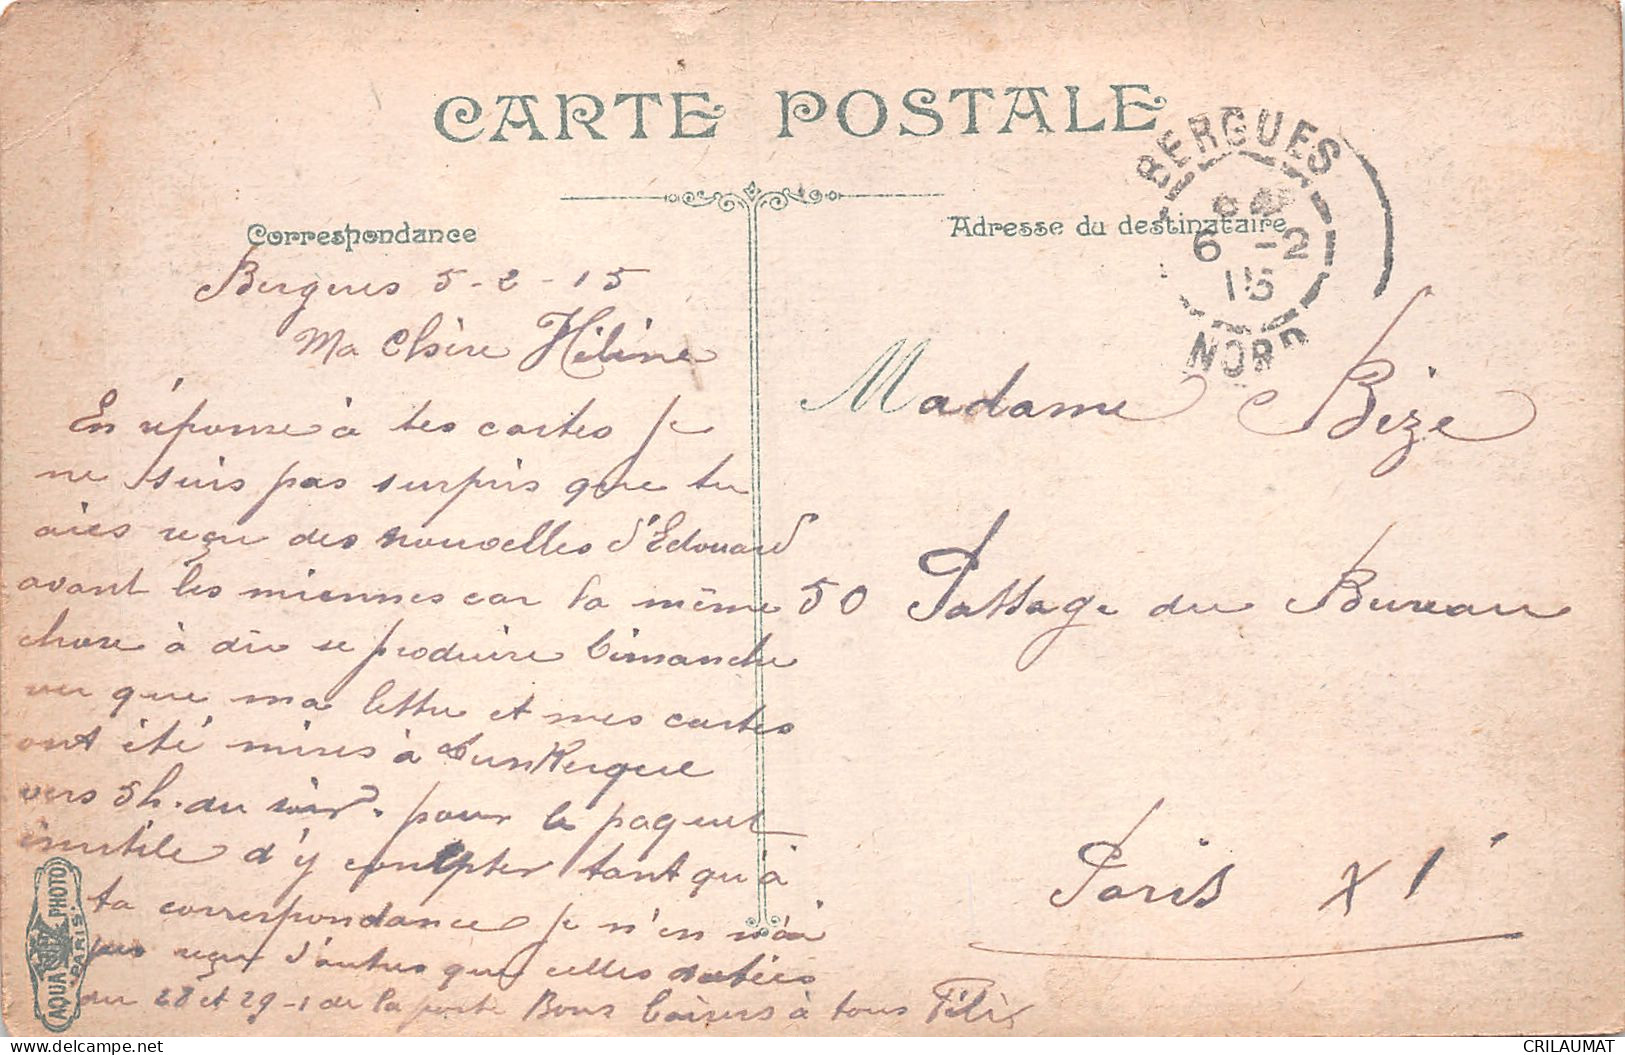 CARTE POSTALE
Correspondance
Adresse du destinataire
BERGUES
6 -2
15
NORD
Bergues 5-2-15
Ma Chère Hélène
En réponse à tes cartes je
ne suis pas surpris que tu
aies reçu des nouvelles d'Edouard
avant les miennes car la même
chose à dû se produire Dimanche
vu que ma lettre et mes cartes
ont été mises à Dunkerque
vers 5h. du soir. pour le paquet
inutile d'y compter tant qu'à
ta correspondance je n'en n'ai
pas reçu d'autres que celles datées
du 28 et 29-1 de la poste Bons baisers à tous Félix
Madame Bize
50 Passage du Bureau
Paris XI
AQUA PHOTO
PARIS
delcampe.net
CRILAUMAT